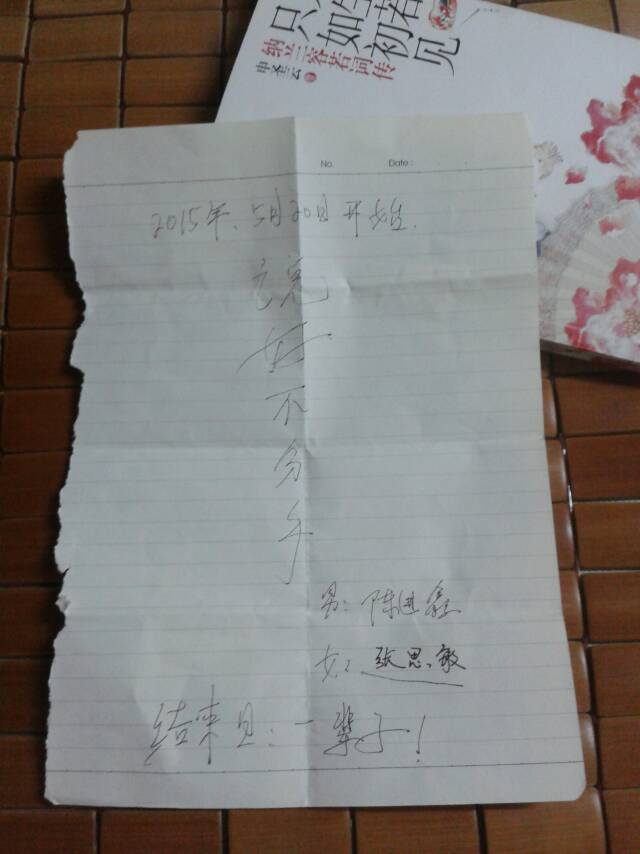 只如初见
纳兰容若词传
申圣云 著
No. Date:
2015年、5月20日开始.
说好不分手
男：陈进鑫
女：张思敏
结束日：一辈子！